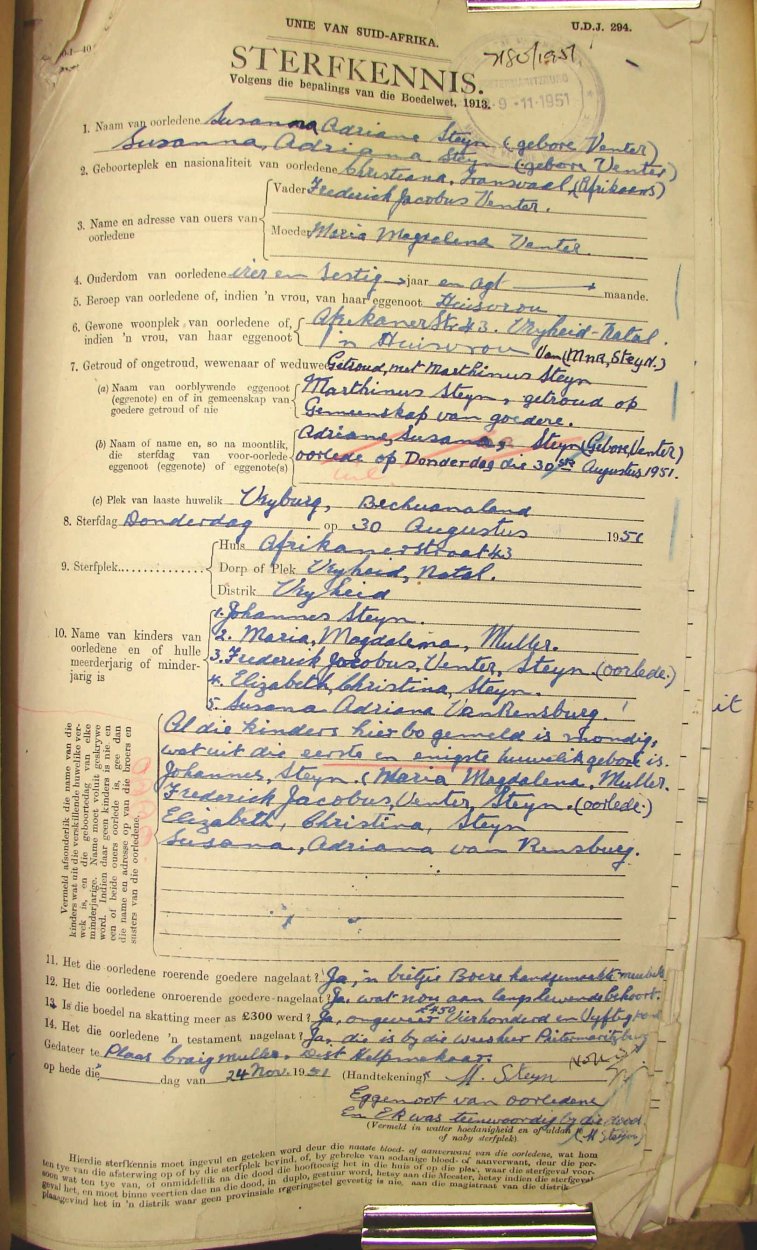 UNIE VAN SUID-AFRIKA.
U.D.J. 294.
7180/1951
STERFKENNIS.
Volgens die bepalings van die Boedelwet, 1913.
9-11-1951
1. Naam van oorledene Susanna Adriane Steyn (gebore Venter)
Susanna, Adriana Steyn (gebore Venter)
2. Geboorteplek en nasionaliteit van oorledene Christiana, Transvaal, (Afrikaans)
3. Name en adresse van ouers van oorledene
Vader Frederick Jacobus Venter.
Moeder Maria Magdalena Venter.
4. Ouderdom van oorledene vier en Sestig jaar en agt maande.
5. Beroep van oorledene of, indien 'n vrou, van haar eggenoot Huisvrou
6. Gewone woonplek van oorledene of, indien 'n vrou, van haar eggenoot
Afrikaner Str. 43. Vryheid-Natal.
'n Huisvrou Van (Mnr, Steyn.)
7. Getroud of ongetroud, wewenaar of weduwee Getroud, met Marthinus Steyn
(a) Naam van oorblywende eggenoot (eggenote) en of in gemeenskap van goedere getroud of nie
Marthinus Steyn, getroud op
Gemeenskap van goedere.
(b) Naam of name en, so na moontlik, die sterfdag van voor-oorlede eggenoot (eggenote) of eggenote(s)
Adriane, Susana, Steyn (Gebore, Venter)
oorlede op Donderdag die 30ste Augustus 1951.
nil
(c) Plek van laaste huwelik Vryburg, Bechuanaland
8. Sterfdag Donderdag op 30 Augustus 1951
9. Sterfplek
Huis Afrikanerstraat 43
Dorp of Plek Vryheid, Natal.
Distrik Vryheid
10. Name van kinders van oorledene en of hulle meerderjarig of minderjarig is
1. Johannes Steyn.
2. Maria, Magdalena, Muller.
3. Frederick Jacobus, Venter, Steyn. (oorlede.)
4. Elizabeth, Christina, Steyn.
5. Susana Adriana Van Rensburg.
Vermeld afsonderlik die name van die kinders wat uit die verskillende huwelike verwek is, en die geboortedag van elke minderjarige. Name moet voluit geskrywe word. Indien daar geen kinders is nie en een of beide ouers oorlede is, gee dan die name en adresse op van die broers en susters van die oorledene.
Al die kinders hier bo gemeld is mondig,
wat uit die eerste en enigste huwelik gebore is.
Johannes, Steyn. (Maria Magdalena, Muller.
Frederick Jacobus, Venter, Steyn. (oorlede.)
Elizabeth, Christina, Steyn
Susana, Adriana van Rensburg.
11. Het die oorledene roerende goedere nagelaat? Ja, 'n bietjie Boere handgemaakte meubels
12. Het die oorledene onroerende goedere nagelaat? Ja, wat nou aan langslewende behoort.
13. Is die boedel na skatting meer as £300 werd? Ja, ongeveer £450 Vierhonderd en Vyftig pond
14. Het die oorledene 'n testament nagelaat? Ja, die is by die weesheer Pietermaritzburg
Gedateer te Plaas Craigmuller, Dist Helpmekaar.
op hede die dag van 24 Nov. 1951 (Handtekening) M. Steyn
Eggenoot van oorledene
En Ek was teenwoordig by die dood
(Vermeld in watter hoedanigheid en of aldan of nie of naby sterfplek). (M Steyn)
Hierdie sterfkennis moet ingevul en geteken word deur die naaste bloed- of aanverwant van die oorledene, wat hom
ten tye van die afsterwing op of by die sterfplek bevind, of, by gebreke van sodanige bloed- of aanverwant, deur die persoon
wat ten tye van, of onmiddellik na die dood die hooftoesig het in die huis of op die plek, waar die sterfgeval voorgeval
het, en moet binne veertien dae na die dood, in duplo, gestuur word, hetsy aan die Meester, hetsy indien die sterfgeval
plaasgevind het in 'n distrik waar geen provinsiale registrasie gevestig is nie, aan die magistraat van die distrik.